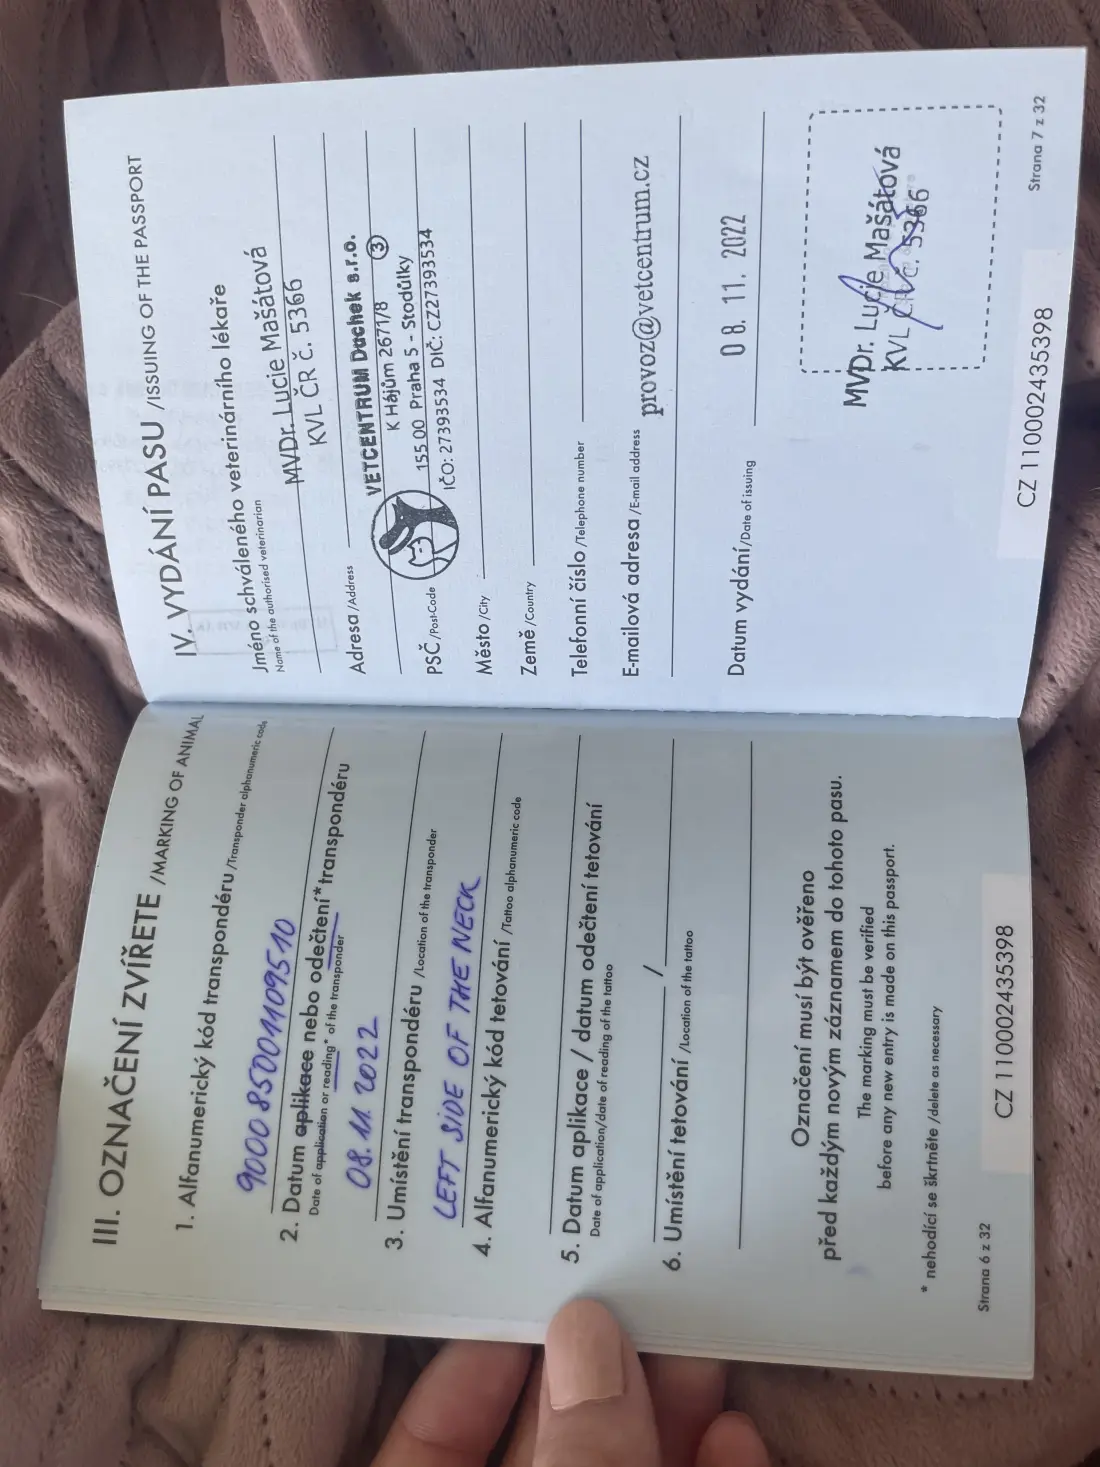 III. OZNAČENÍ ZVÍŘETE /MARKING OF ANIMAL
1. Alfanumerický kód transpondéru /Transponder alphanumeric code
900085001109510
2. Datum aplikace nebo odečtení* transpondéru
Date of application or reading* of the transponder
08.11.2022
3. Umístění transpondéru /Location of the transponder
LEFT SIDE OF THE NECK
4. Alfanumerický kód tetování /Tattoo alphanumeric code
5. Datum aplikace / datum odečtení tetování
Date of application/date of reading of the tattoo
/
6. Umístění tetování /Location of the tattoo
Označení musí být ověřeno
před každým novým záznamem do tohoto pasu.
The marking must be verified
before any new entry is made on this passport.
* nehodící se škrtněte /delete as necessary
Strana 6 z 32
CZ 110002435398
IV. VYDÁNÍ PASU /ISSUING OF THE PASSPORT
Jméno schváleného veterinárního lékaře
Name of the authorised veterinarian
MVDr. Lucie Mašátová
KVL ČR č. 5366
Adresa /Address
VETCENTRUM Duchek s.r.o.
K Hájům 2671/8 3
PSČ /Post-Code
155 00 Praha 5 - Stodůlky
IČO: 27393534 DIČ: CZ27393534
Město /City
Země /Country
Telefonní číslo /Telephone number
E-mailová adresa /E-mail address
provoz@vetcentrum.cz
Datum vydání /Date of issuing
08. 11. 2022
MVDr. Lucie Mašátová
KVL ČR č. 5366
CZ 110002435398
Strana 7 z 32